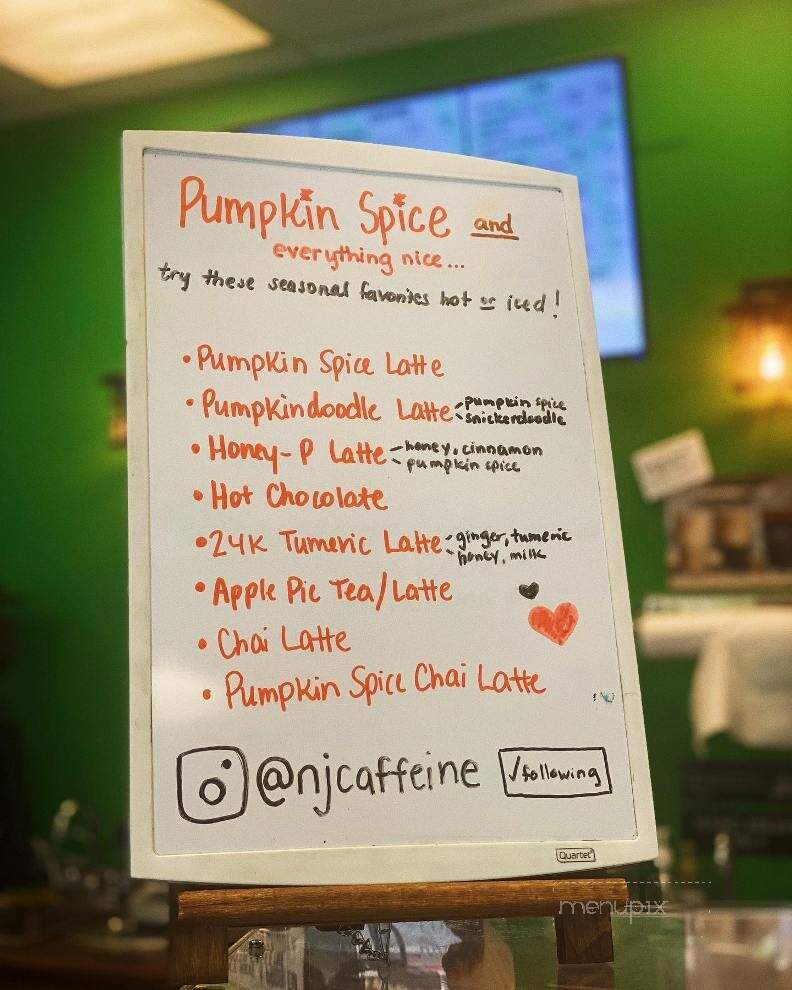 Pumpkin Spice and
everything nice...
try these seasonal favorites hot or iced!
• Pumpkin Spice Latte
• Pumpkindoodle Latte - pumpkin spice
- snickerdoodle
• Honey-P Latte - honey, cinnamon
- pumpkin spice
• Hot Chocolate
• 24K Tumeric Latte - ginger, tumeric
- honey, milk
• Apple Pie Tea/Latte
• Chai Latte
• Pumpkin Spice Chai Latte
@njcaffeine √following
Quartet
menupix